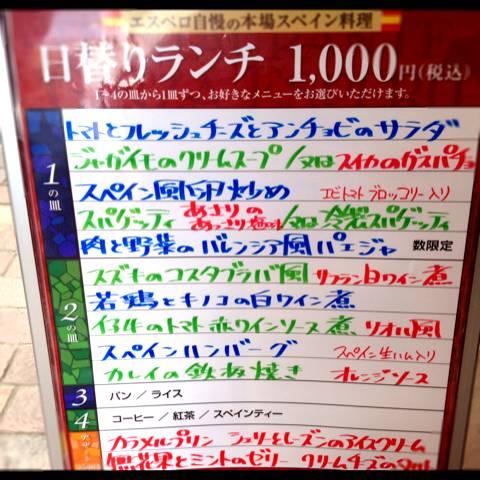 エスペロ自慢の本場スペイン料理
日替りランチ 1,000円(税込)
1~4の皿から1皿ずつ、お好きなメニューをお選びいただけます。
1の皿
トマトとフレッシュチーズとアンチョビのサラダ
ジャガイモのクリームスープ/又はスイカのガスパチョ
スペイン風卵炒め エビトマトブロッコリー入り
スパゲッティ あさりの あっさり塩味/又は冷製スパゲッティ
肉と野菜のバレンシア風パエジャ 数限定
2の皿
スズキのコスタブラバ風 サフラン白ワイン煮
若鶏とキノコの白ワイン煮
仔牛のトマト赤ワインソース煮、リオハ風
スペインハンバーグ スペイン生ハム入り
カレイの鉄板焼き オレンジソース
3 パン / ライス
4 コーヒー / 紅茶 / スペインティー
カラメルプリン シェリーとレーズンのアイスクリーム
無花果とミントのゼリー クリームチーズの